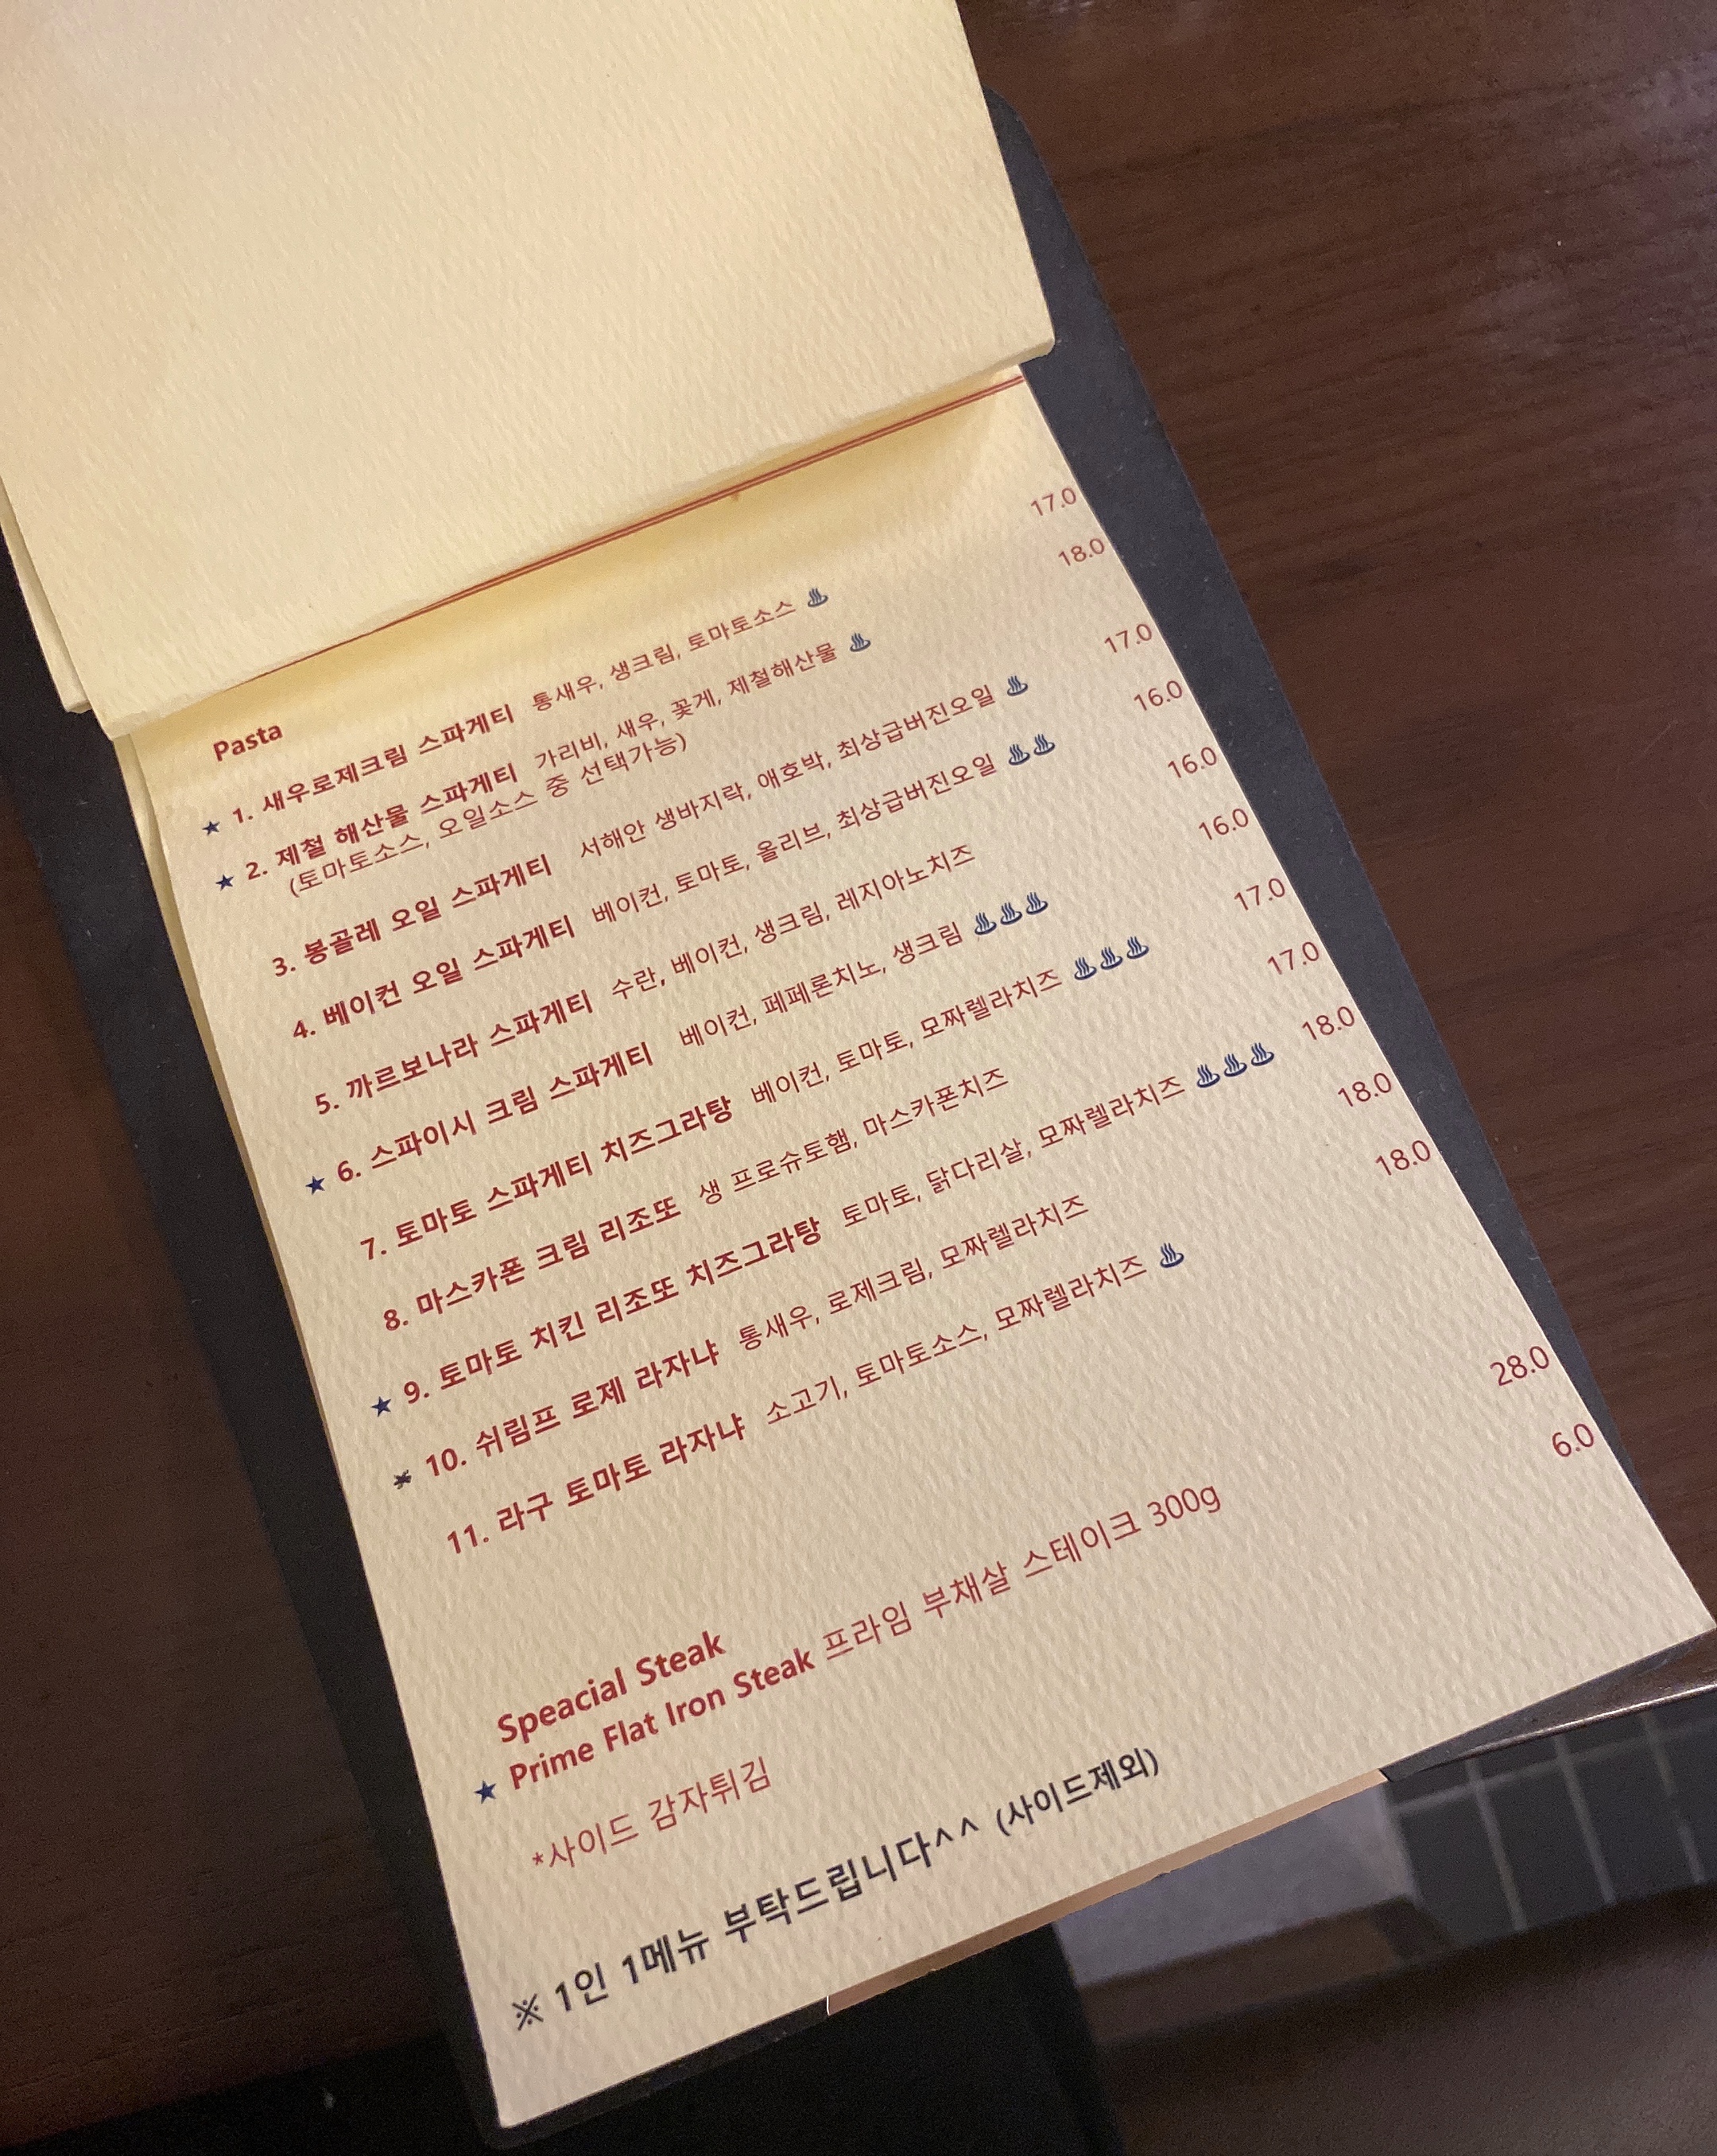 Pasta
★ 1. 새우로제크림 스파게티 통새우, 생크림, 토마토소스 ♨ 17.0
★ 2. 제철 해산물 스파게티 가리비, 새우, 꽃게, 제철해산물 ♨ 18.0
(토마토소스, 오일소스 중 선택가능)
3. 봉골레 오일 스파게티 서해안 생바지락, 애호박, 최상급버진오일 ♨ 17.0
4. 베이컨 오일 스파게티 베이컨, 토마토, 올리브, 최상급버진오일 ♨♨ 16.0
5. 까르보나라 스파게티 수란, 베이컨, 생크림, 레지아노치즈 16.0
★ 6. 스파이시 크림 스파게티 베이컨, 페페론치노, 생크림 ♨♨♨ 16.0
7. 토마토 스파게티 치즈그라탕 베이컨, 토마토, 모짜렐라치즈 ♨♨♨ 17.0
8. 마스카폰 크림 리조또 생 프로슈토햄, 마스카폰치즈 17.0
★ 9. 토마토 치킨 리조또 치즈그라탕 토마토, 닭다리살, 모짜렐라치즈 ♨♨♨ 18.0
★ 10. 쉬림프 로제 라자냐 통새우, 로제크림, 모짜렐라치즈 18.0
11. 라구 토마토 라자냐 소고기, 토마토소스, 모짜렐라치즈 ♨ 18.0
Speacial Steak
★ Prime Flat Iron Steak 프라임 부채살 스테이크 300g 28.0
*사이드 감자튀김 6.0
※ 1인 1메뉴 부탁드립니다^^ (사이드제외)